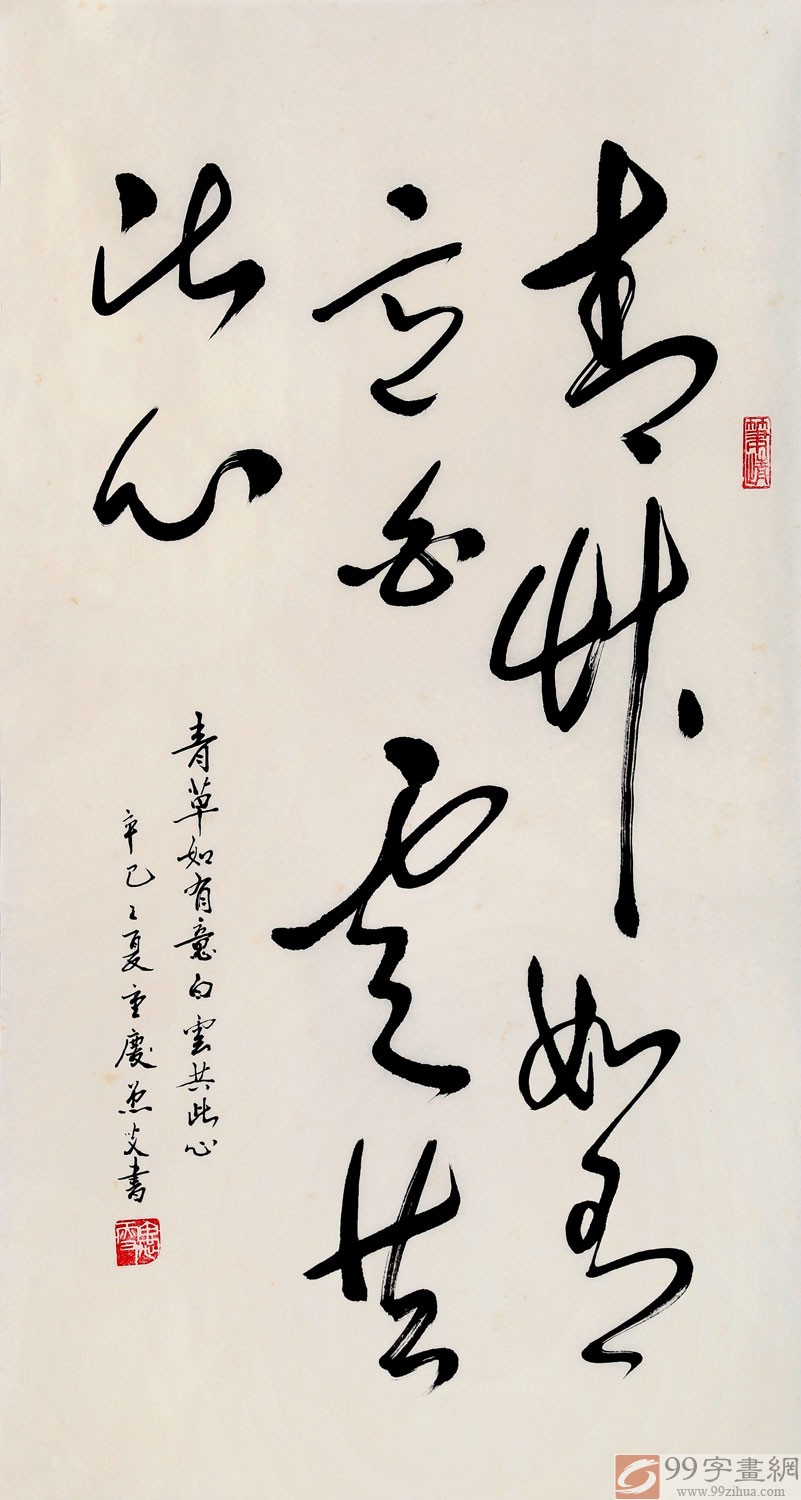 青艸如有
意白雲共
此心
青草如有意白雲共此心
辛巳之夏重慶燕叟書
99字畫網
www.99zihua.com